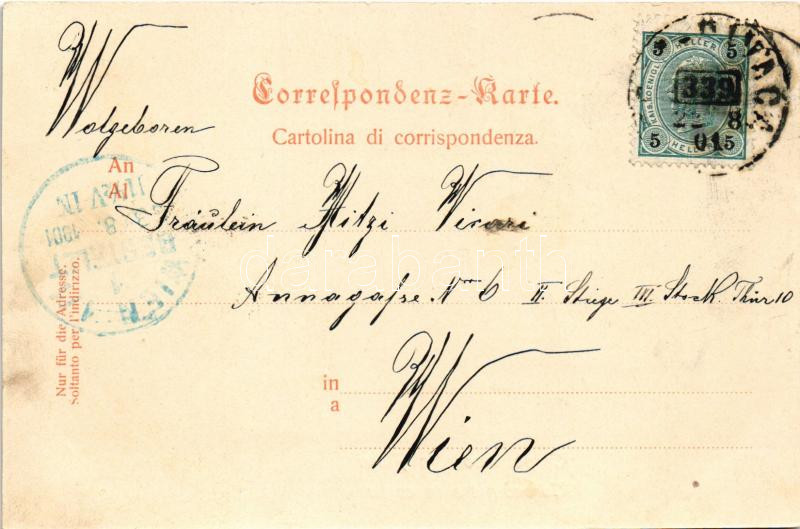 Correspondenz-Karte.
Cartolina di corrispondenza.
5 HELLER 5
KAIS. KOENIGL.
339
22 8
01
5 HELLER 5
Wolgeboren
An
Al
Fräulein Mitzi
Annagasse Nro 6 II. Stiege III. Stock. Thür 10
in
a
Wien
Nur für die Adresse.
Soltanto per l'indirizzo.
WIEN
BESTELLT
1901
darabanth